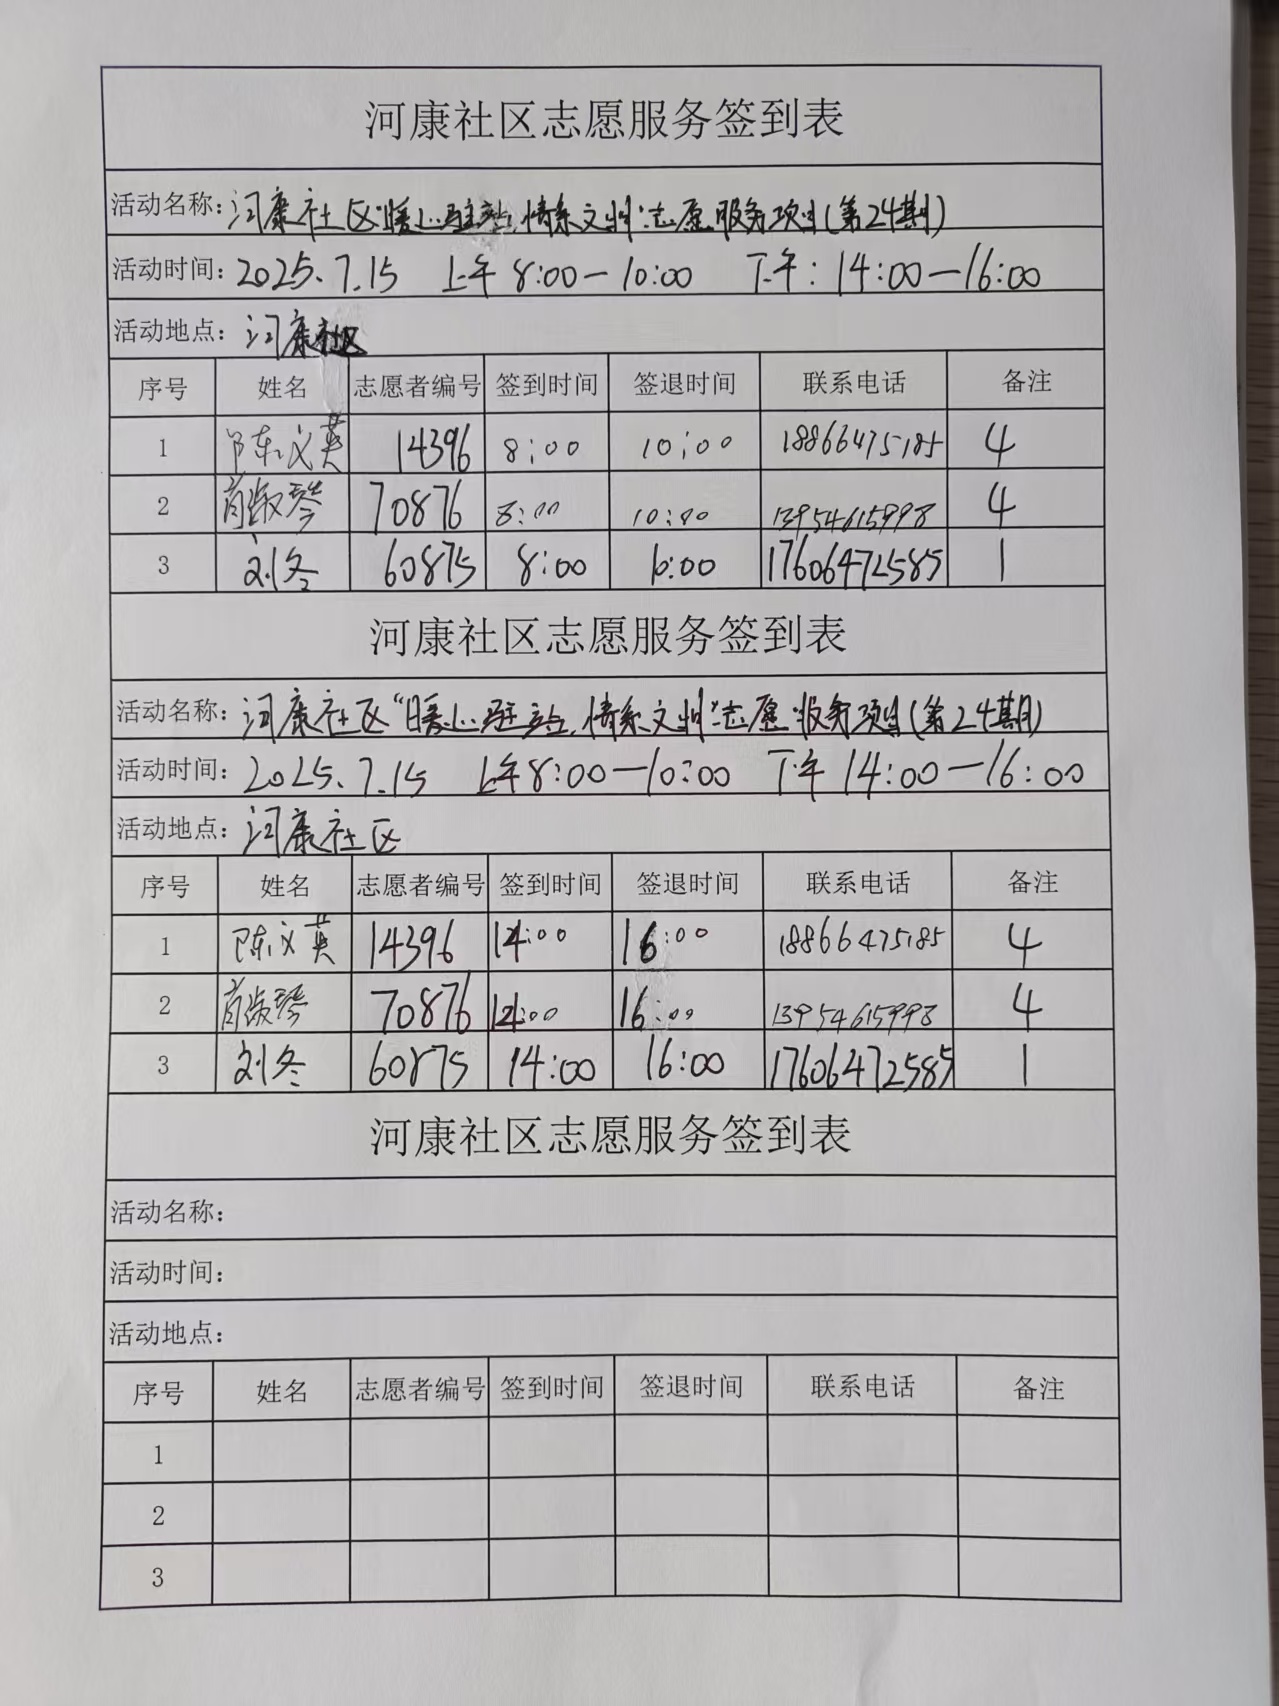 河康社区志愿服务签到表
活动名称：河康社区"暖心驻站，情系文州"志愿服务项目(第24期)
活动时间：2025.7.15 上午8:00—10:00 下午：14:00—16:00
活动地点：河康社区
序号 姓名 志愿者编号 签到时间 签退时间 联系电话 备注
1 陈义英 14396 8:00 10:00 18866475185 4
2 肖淑琴 70876 8:00 10:00 13954615998 4
3 刘冬 60875 8:00 10:00 17606472585 1
河康社区志愿服务签到表
活动名称：河康社区"暖心驻站，情系文州"志愿服务项目(第24期)
活动时间：2025.7.15 上午8:00—10:00 下午14:00—16:00
活动地点：河康社区
序号 姓名 志愿者编号 签到时间 签退时间 联系电话 备注
1 陈义英 14396 14:00 16:00 18866475185 4
2 肖淑琴 70876 14:00 16:00 13954615998 4
3 刘冬 60875 14:00 16:00 17606472585 1
河康社区志愿服务签到表
活动名称：
活动时间：
活动地点：
序号 姓名 志愿者编号 签到时间 签退时间 联系电话 备注
1
2
3